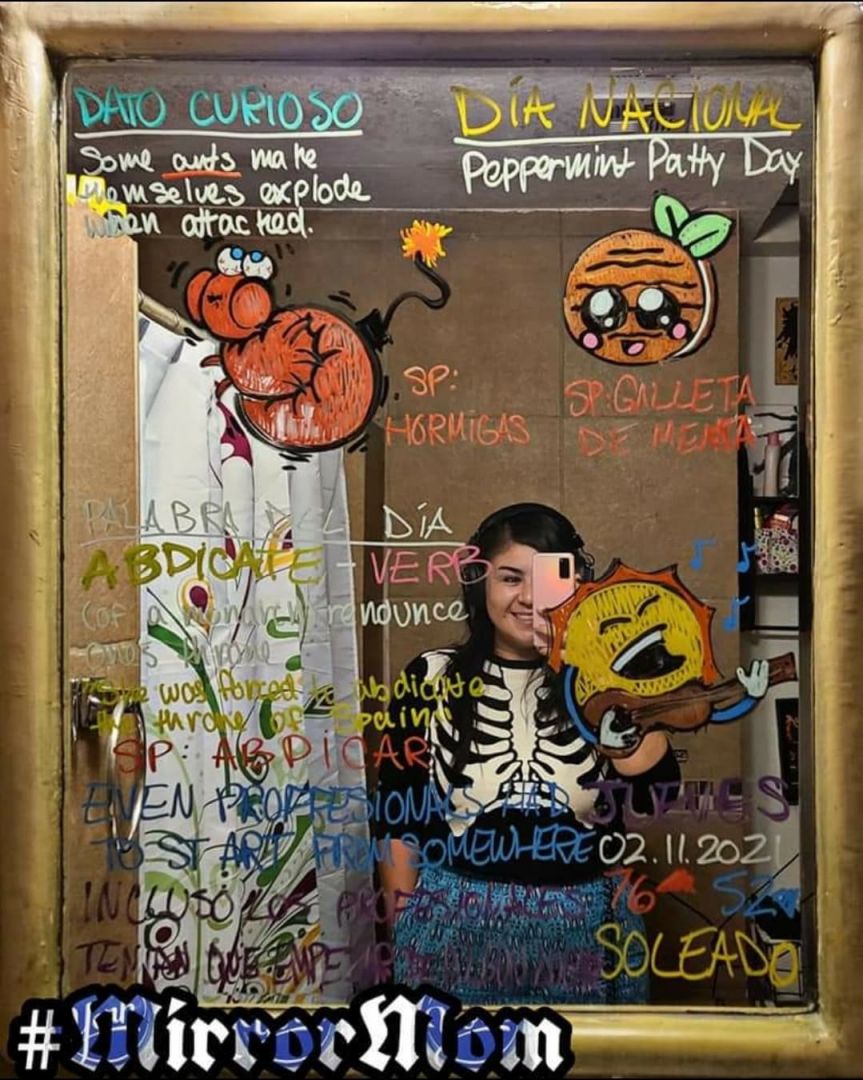 DATO CURIOSO
Some ants make
themselves explode
when attacked.
DÍA NACIONAL
Peppermint Patty Day
SP:
HORMIGAS
SP: GALLETA
DE MENTA
PALABRA DEL DÍA
ABDICATE - VERB
(of a monarch) renounce
one's throne
"She was forced to abdicate
the throne of Spain"
SP: ABDICAR
EVEN PROFFESIONALS HAD
TO START FROM SOMEWHERE
INCLUSO LOS PROFESIONALES
TENÍAN QUE EMPEZAR DE
JUEVES
02.11.2021
76 52
SOLEADO
#MirrorMom